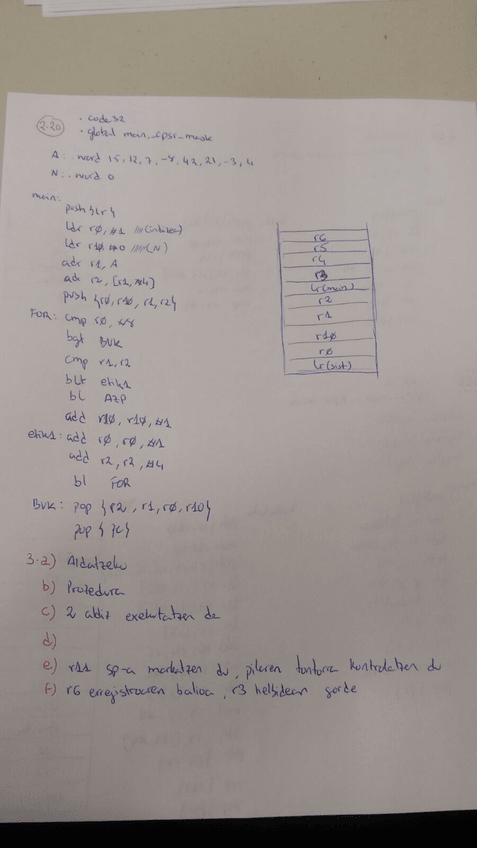 2.20
.code32
.global main, _cpsr_mask
A: .word 15, 12, 7, -8, 42, 21, -3, 4
N: .word 0
main:
push {lr}
ldr r0, #1
ldr r10 #0 (N)
adr r1, A
adr r2, [r1, #4]
push {r0, r10, r1, r2}
FOR: cmp r0, #8
bgt BUK
cmp r1, r2
blt etik1
bl AZP
add r10, r10, #1
etik1: add r0, r0, #1
add r2, r2, #4
bl FOR
BUK: pop {r2, r1, r0, r10}
pop {PC}
r6
r5
r4
r3
lr(main)
r2
r1
r10
r0
lr(sist)
3.a) Aldatzeko
b) Prozedura
c) 2 aldiz exekutatzen da
d)
e) r11 sp-a markatzen du, pilaren tontorra kontrolatzen du
f) r6 erregistroaren balioa, r3 helbidean gorde